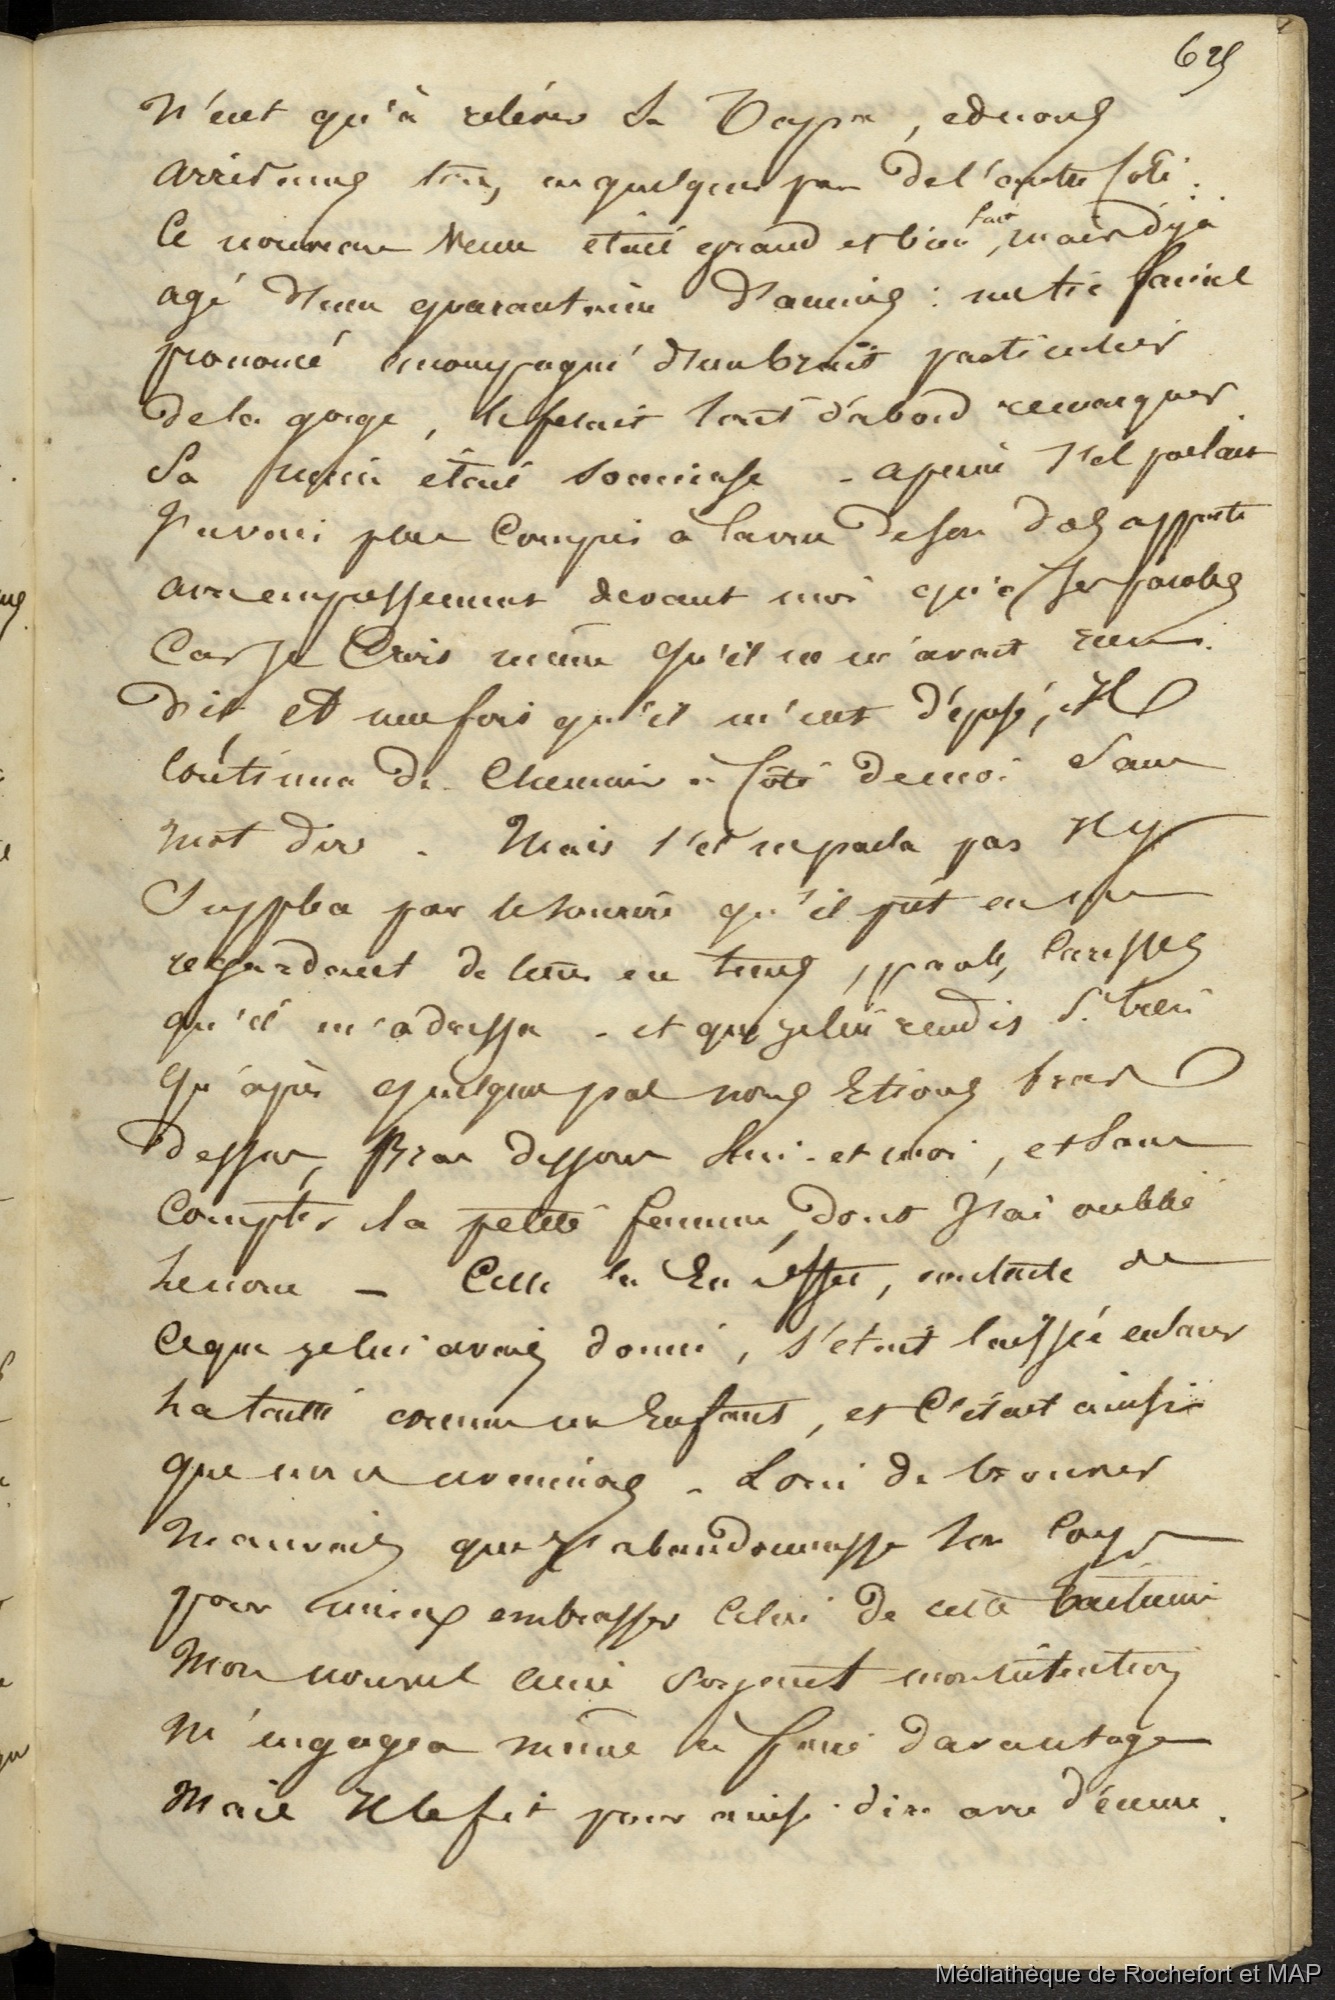 629
n'eut qu'à relever sa Tapa, et nous
arrivames tous, en quelques pas de l'autre côté.
Ce nouveau venu était grand et bien fait, mais déjà
agé d'une quarantaine d'années : un tic facial
prononcé accompagné d'un bruit particulier
de la gorge, le fesait tout d'abord remarquer
Sa mine était soucieuse - apeine s'il parlait
J'avais plus compris à la vue de son dos apporté
avec empressement devant moi qu'à ses paroles
Car je Crois même qu'il ne m'avait rien
dit, et une fois qu'il m'eut déposé, il
continua de Cheminer à côté de moi sans
mot dire. Mais s'il ne parla pas Il y
Supplea par le sourire qu'il prit en me
regardant de tems en tems, par les caresses
qu'il m'adressa - et que je lui rendis si bien
qu'après quelques pas nous Etions bras
dessus, Bras dessous Lui et moi, et sans
compter la petite femme, dont J'ai oublié
le nom - Celle la En effet, contente de
ce que je lui avais donné, s'était laissée enlacer
la taille comme un Enfant, et C'était ainsi
que nous avancions - Loin de trouver
mauvais que J'abandonnasse son Corps
pour mieux embrasser Celui de cette
Mon nouvel ami voyant mon intention
M'engagea même à faire davantage
Mais Il le fit pour ainsi dire avec d'écume.
Médiathèque de Rochefort et MAP